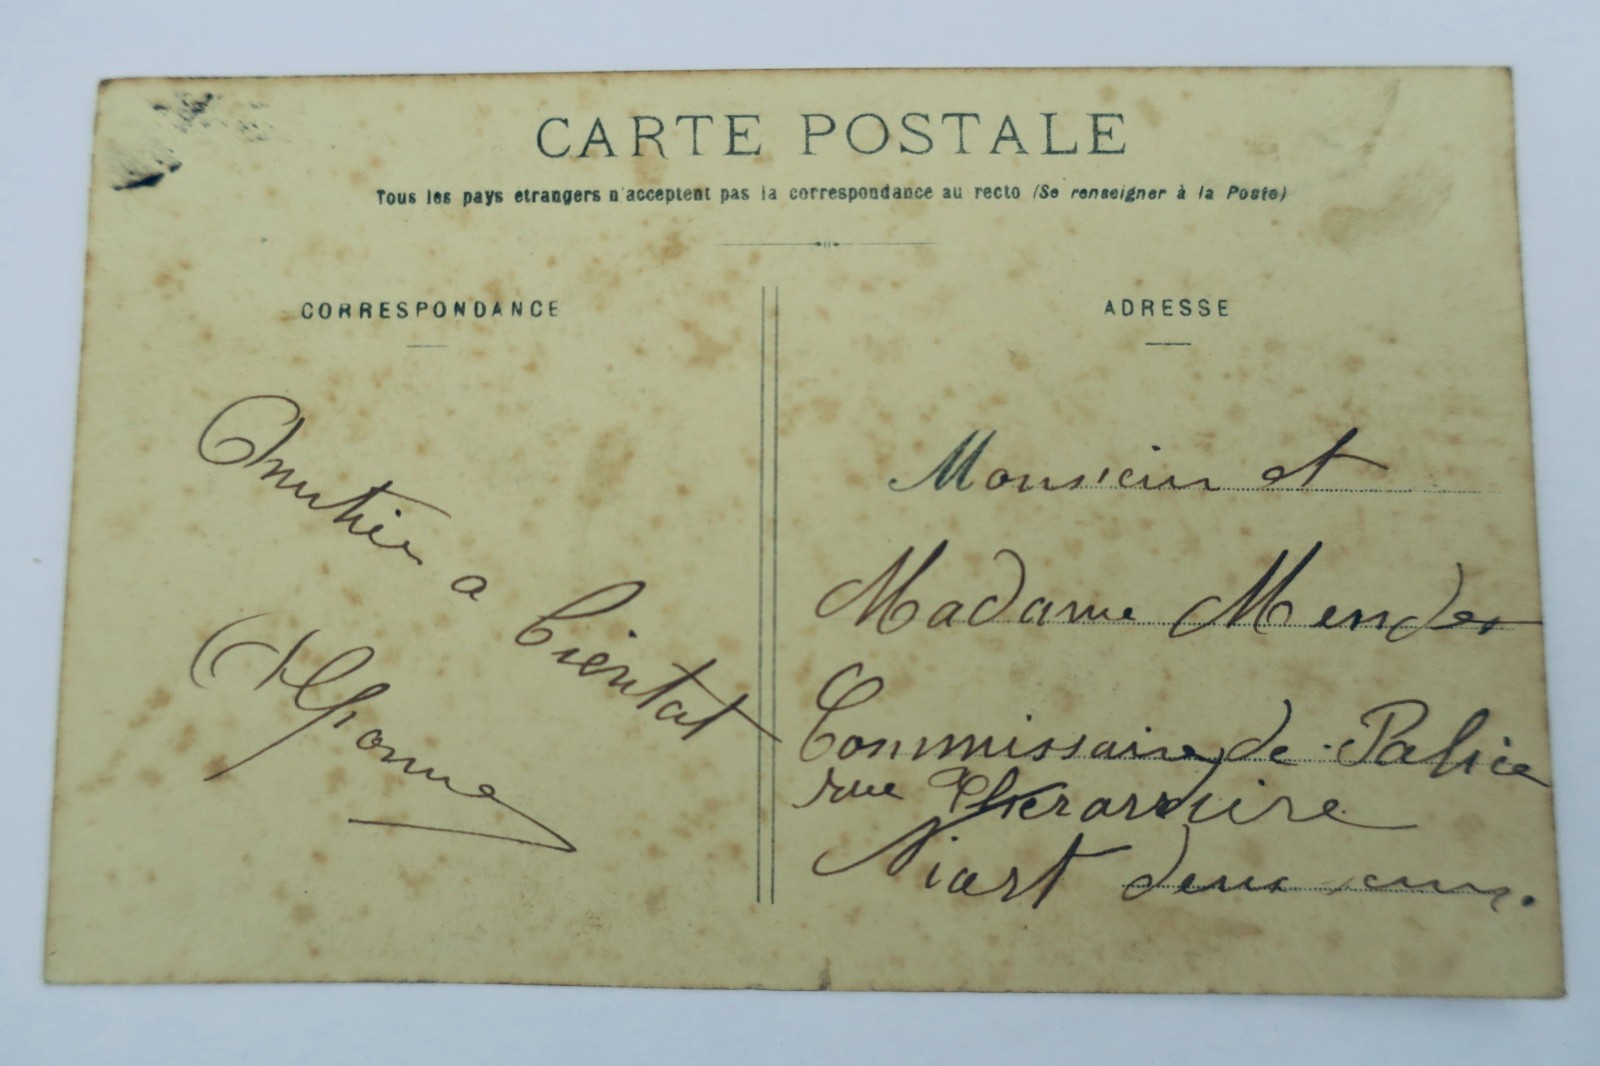 CARTE POSTALE
Tous les pays etrangers n'acceptent pas la correspondance au recto (Se renseigner à la Poste)
CORRESPONDANCE
a bientot
ADRESSE
Monsieur et
Madame Mendes
Commissaire de Police
rue
Niort deux